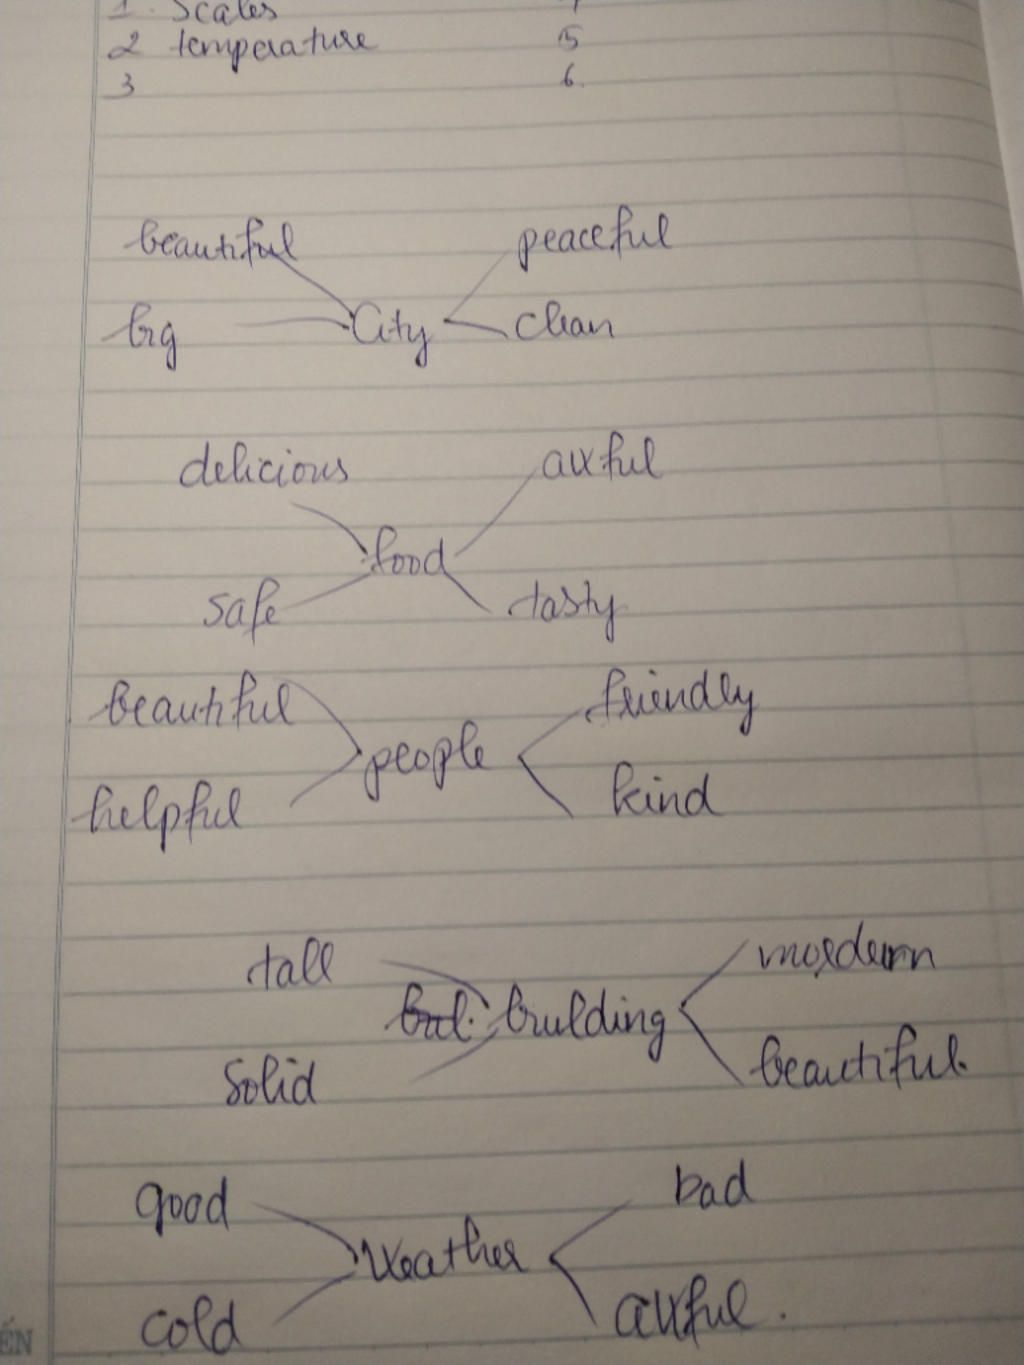 1. Scales
2 temperature 5
3 6.
beautiful peaceful
big City clean
delicious awful
food
safe tasty
beautiful friendly
people
helpful kind
tall mordern
building
Solid beautiful.
good bad
Weather
cold awful.
ẾN